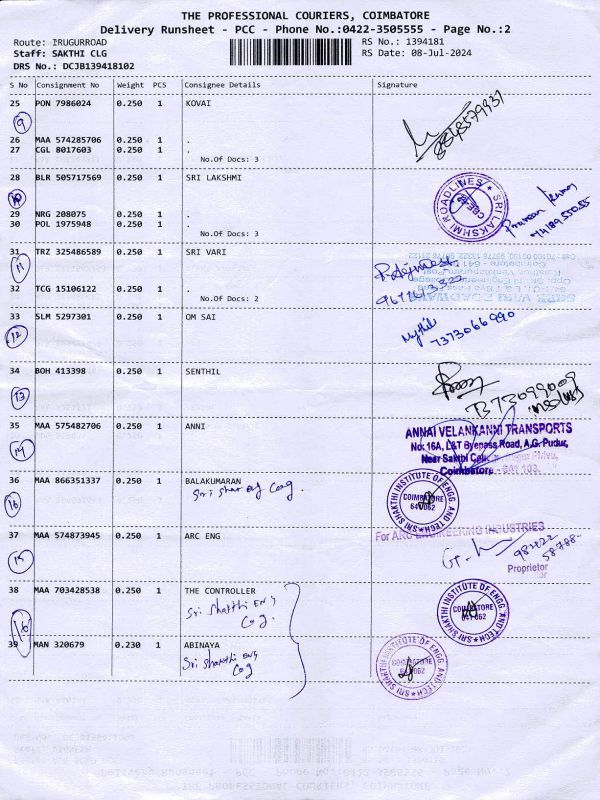 THE PROFESSIONAL COURIERS, COIMBATORE
Delivery Runsheet - PCC - Phone No.:0422-3505555 - Page No.:2
Route: IRUGURROAD RS No.: 1394181
Staff: SAKTHI CLG RS Date: 08-Jul-2024
DRS No.: DCJB139418102
S No Consignment No Weight PCS Consignee Details Signature
25 PON 7986024 0.250 1 KOVAI
9
26 MAA 574285706 0.250 1 .
27 CGL 8017603 0.250 1 .
No.Of Docs: 3
28 BLR 505717569 0.250 1 SRI LAKSHMI
SRI LAKSHMI ROADLINES
CBE
10
29 NRG 208075 0.250 1 .
30 POL 1975948 0.250 1 .
No.Of Docs: 3
31 TRZ 325486589 0.250 1 SRI VARI
11
32 TCG 15106122 0.250 1 .
No.Of Docs: 2
33 SLM 5297301 0.250 1 OM SAI
12
7373066990
34 BOH 413398 0.250 1 SENTHIL
13
35 MAA 575482706 0.250 1 ANNI
14
ANNAI VELANKANNI TRANSPORTS
No: 16A, L&T Byepass Road, A.G. Pudur,
Near Sakthi
Coimbatore - 641 103.
36 MAA 866351337 0.250 1 BALAKUMARAN
16
SRI SHAKTHI INSTITUTE OF ENGG. AND TECH
COIMBATORE
641 062
37 MAA 574873945 0.250 1 ARC ENG
15
For ARC ENGINEERING INDUSTRIES
Proprietor
38 MAA 703428538 0.250 1 THE CONTROLLER
Sri Shakthi Eng
Cog.
16
SRI SHAKTHI INSTITUTE OF ENGG. AND TECH
COIMBATORE
641 062
39 MAN 320679 0.230 1 ABINAYA
Sri Shakthi Eng
Cog
SRI SHAKTHI INSTITUTE OF ENGG. AND TECH
COIMBATORE
641 062